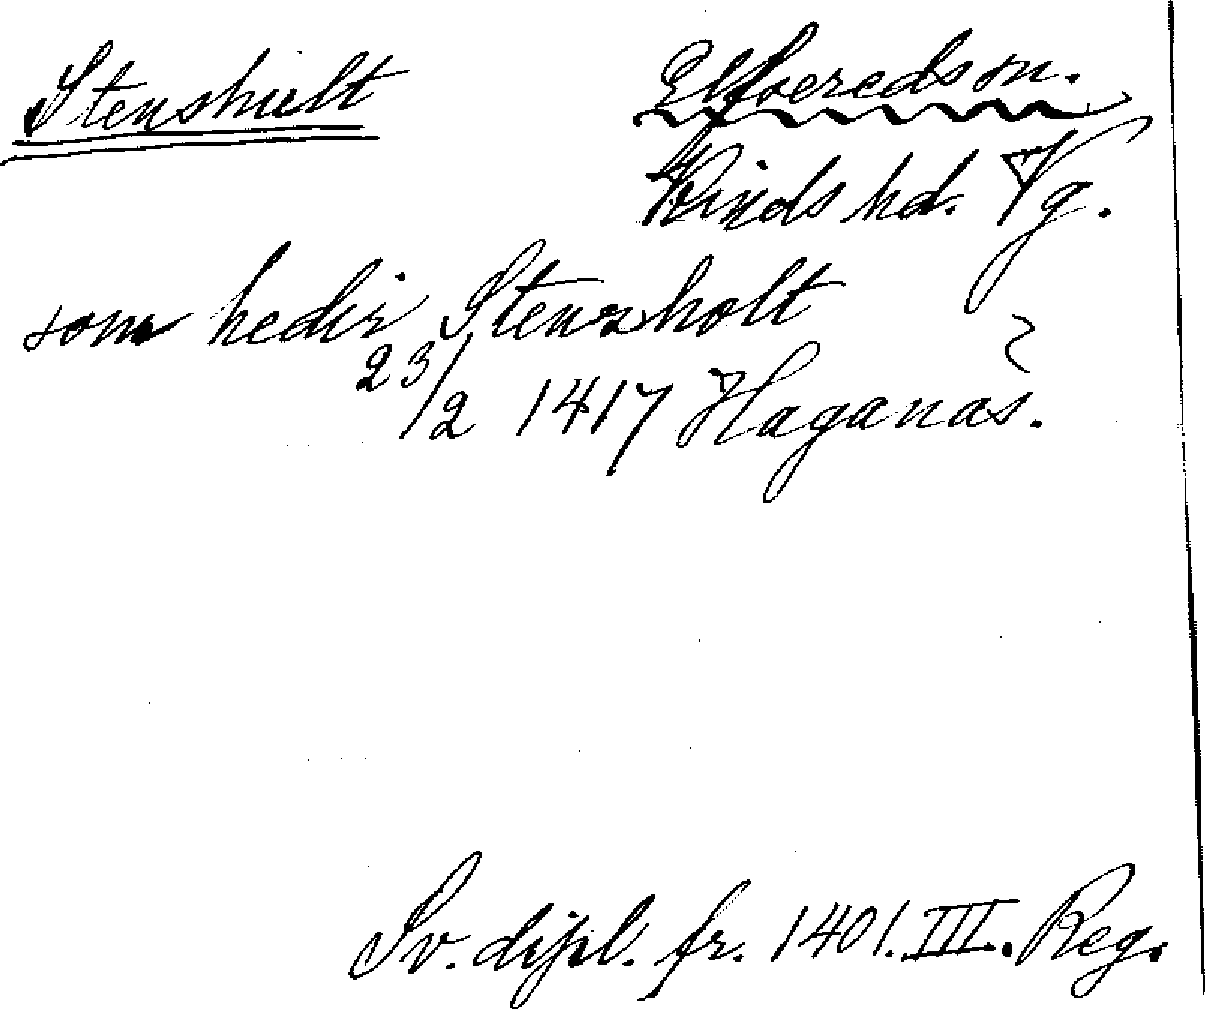 Stenshult Elfveredssn.
Kinds hd. Vg.
som hedir Stensholt
23/2 1417 Haganäs.
Sv. dipl. fr. 1401. III. Reg.